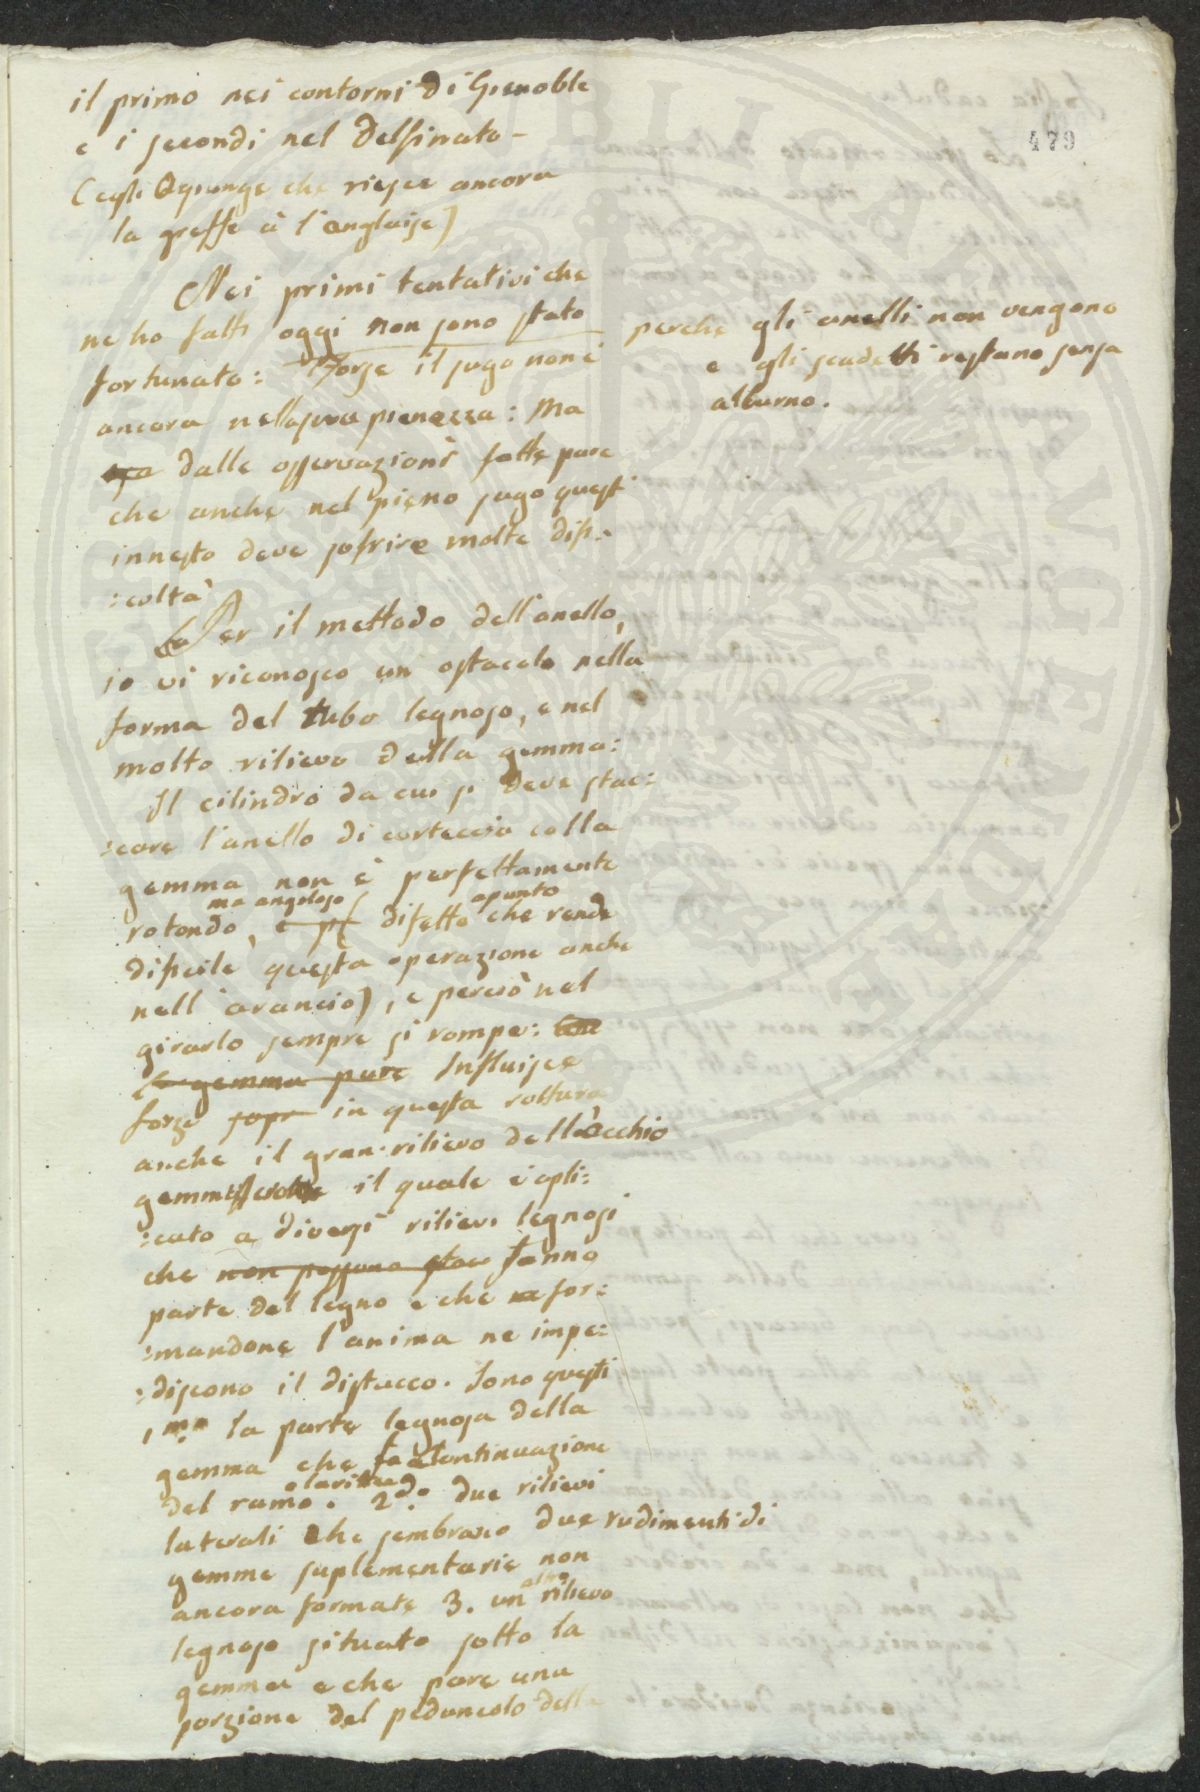 479
il primo nei contorni di Grenoble
e i secondi nel Delfinato -
(egli agiunge che riesce ancora
la greffe à l'anglaise)
Nei primi tentativi che
ne ho fatti oggi non sono stato
fortunato: Forse il sugo non è
ancora nella sua pienezza: Ma
dalle osservazioni fatte pare
che anche nel pieno sugo quest'
innesto deve sofrire molte difi:
:coltà
Per il mettodo dell'anello,
io vi riconosco un ostacolo nella
forma del tubo legnoso, e nel
molto rilievo della gemma:
Il cilindro da cui si deve stac:
:care l'anello di corteccia colla
gemma non è perfettamente
rotondo, ma angoloso (difetto apunto che rende
dificile questa operazione anche
nell'arancio), e perciò nel
girarlo sempre si rompe:
la gemma pure Influisce
forse sopr in questa rottura
anche il gran rilievo dell'occhio
il quale è apli:
:cato a diversi rilievi legnosi
che non possono stac fanno
parte del legno e che for:
:mandone l'anima ne impe:
:discono il distacco. Sono questi
1.mo la parte legnosa della
gemma che fa continuazione
del ramo. 2.do due rilievi
laterali che sembrano due rudimenti di
gemme suplementarie non
ancora formate 3. un altro rilievo
legnoso situato sotto la
gemma e che pare una
porzione del peduncolo della
perche gli anelli non vengono
e gli scudetti restano senza
alburno.